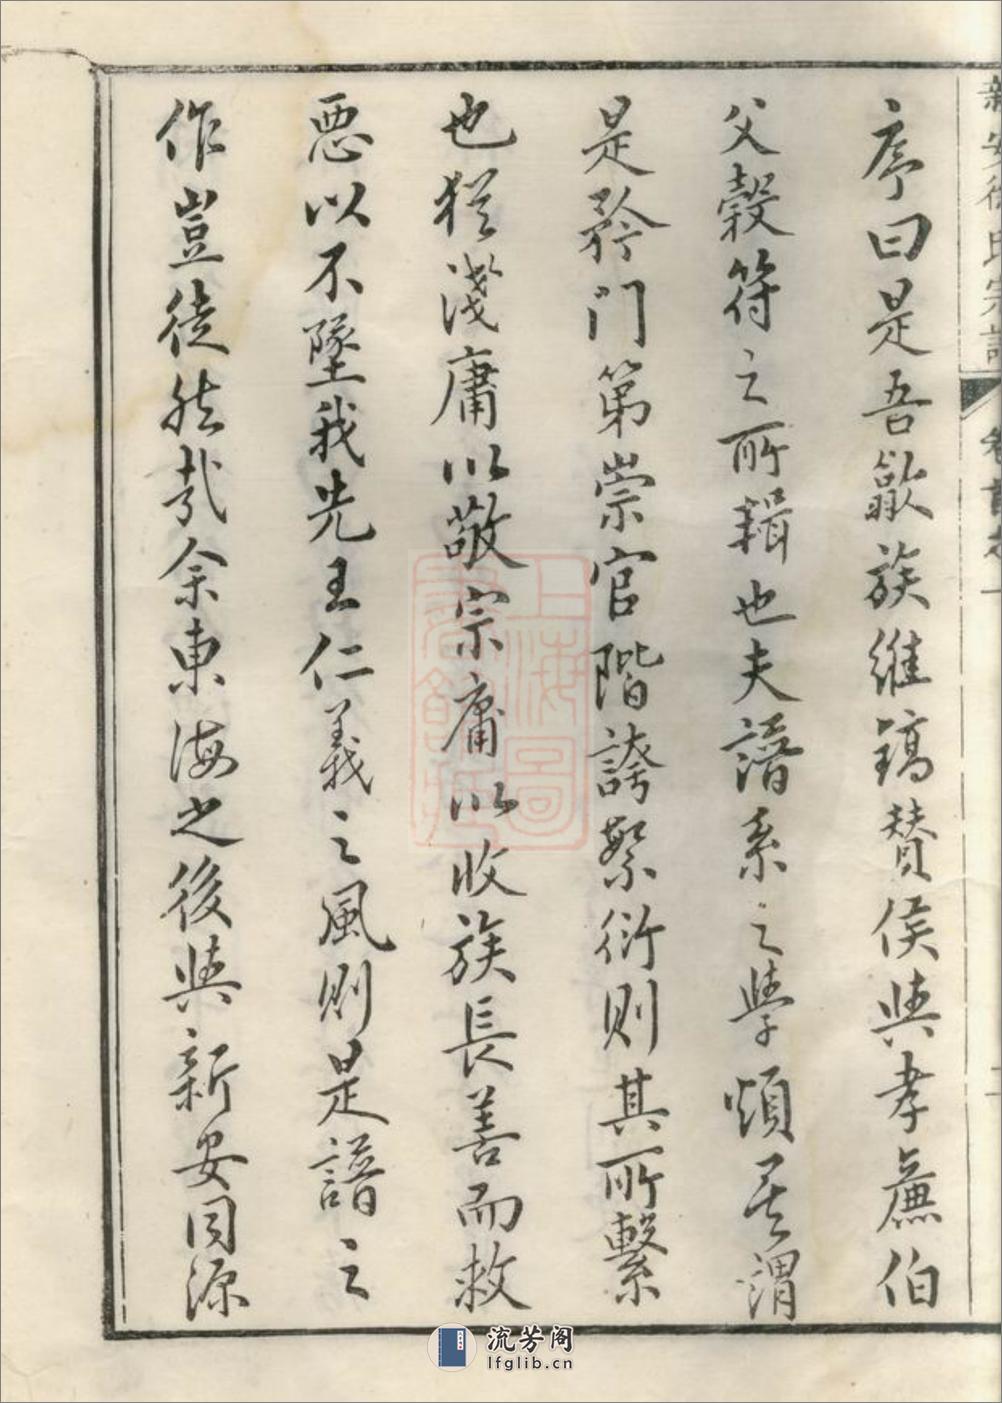 新安徐氏宗譜 卷首之一
序曰是吾歙族維鏑贊侯與孝廉伯
父榖符之所輯也夫譜系之學煩義謂
是矜門第崇官階誇繁衍則其所繫
也猶淺庸以敬宗庸以收族長善而救
惡以不墜我先王仁義之風則是譜之
作豈徒然哉余東海之後與新安同源
上海圖書館藏
流芳阁
lfglib.cn